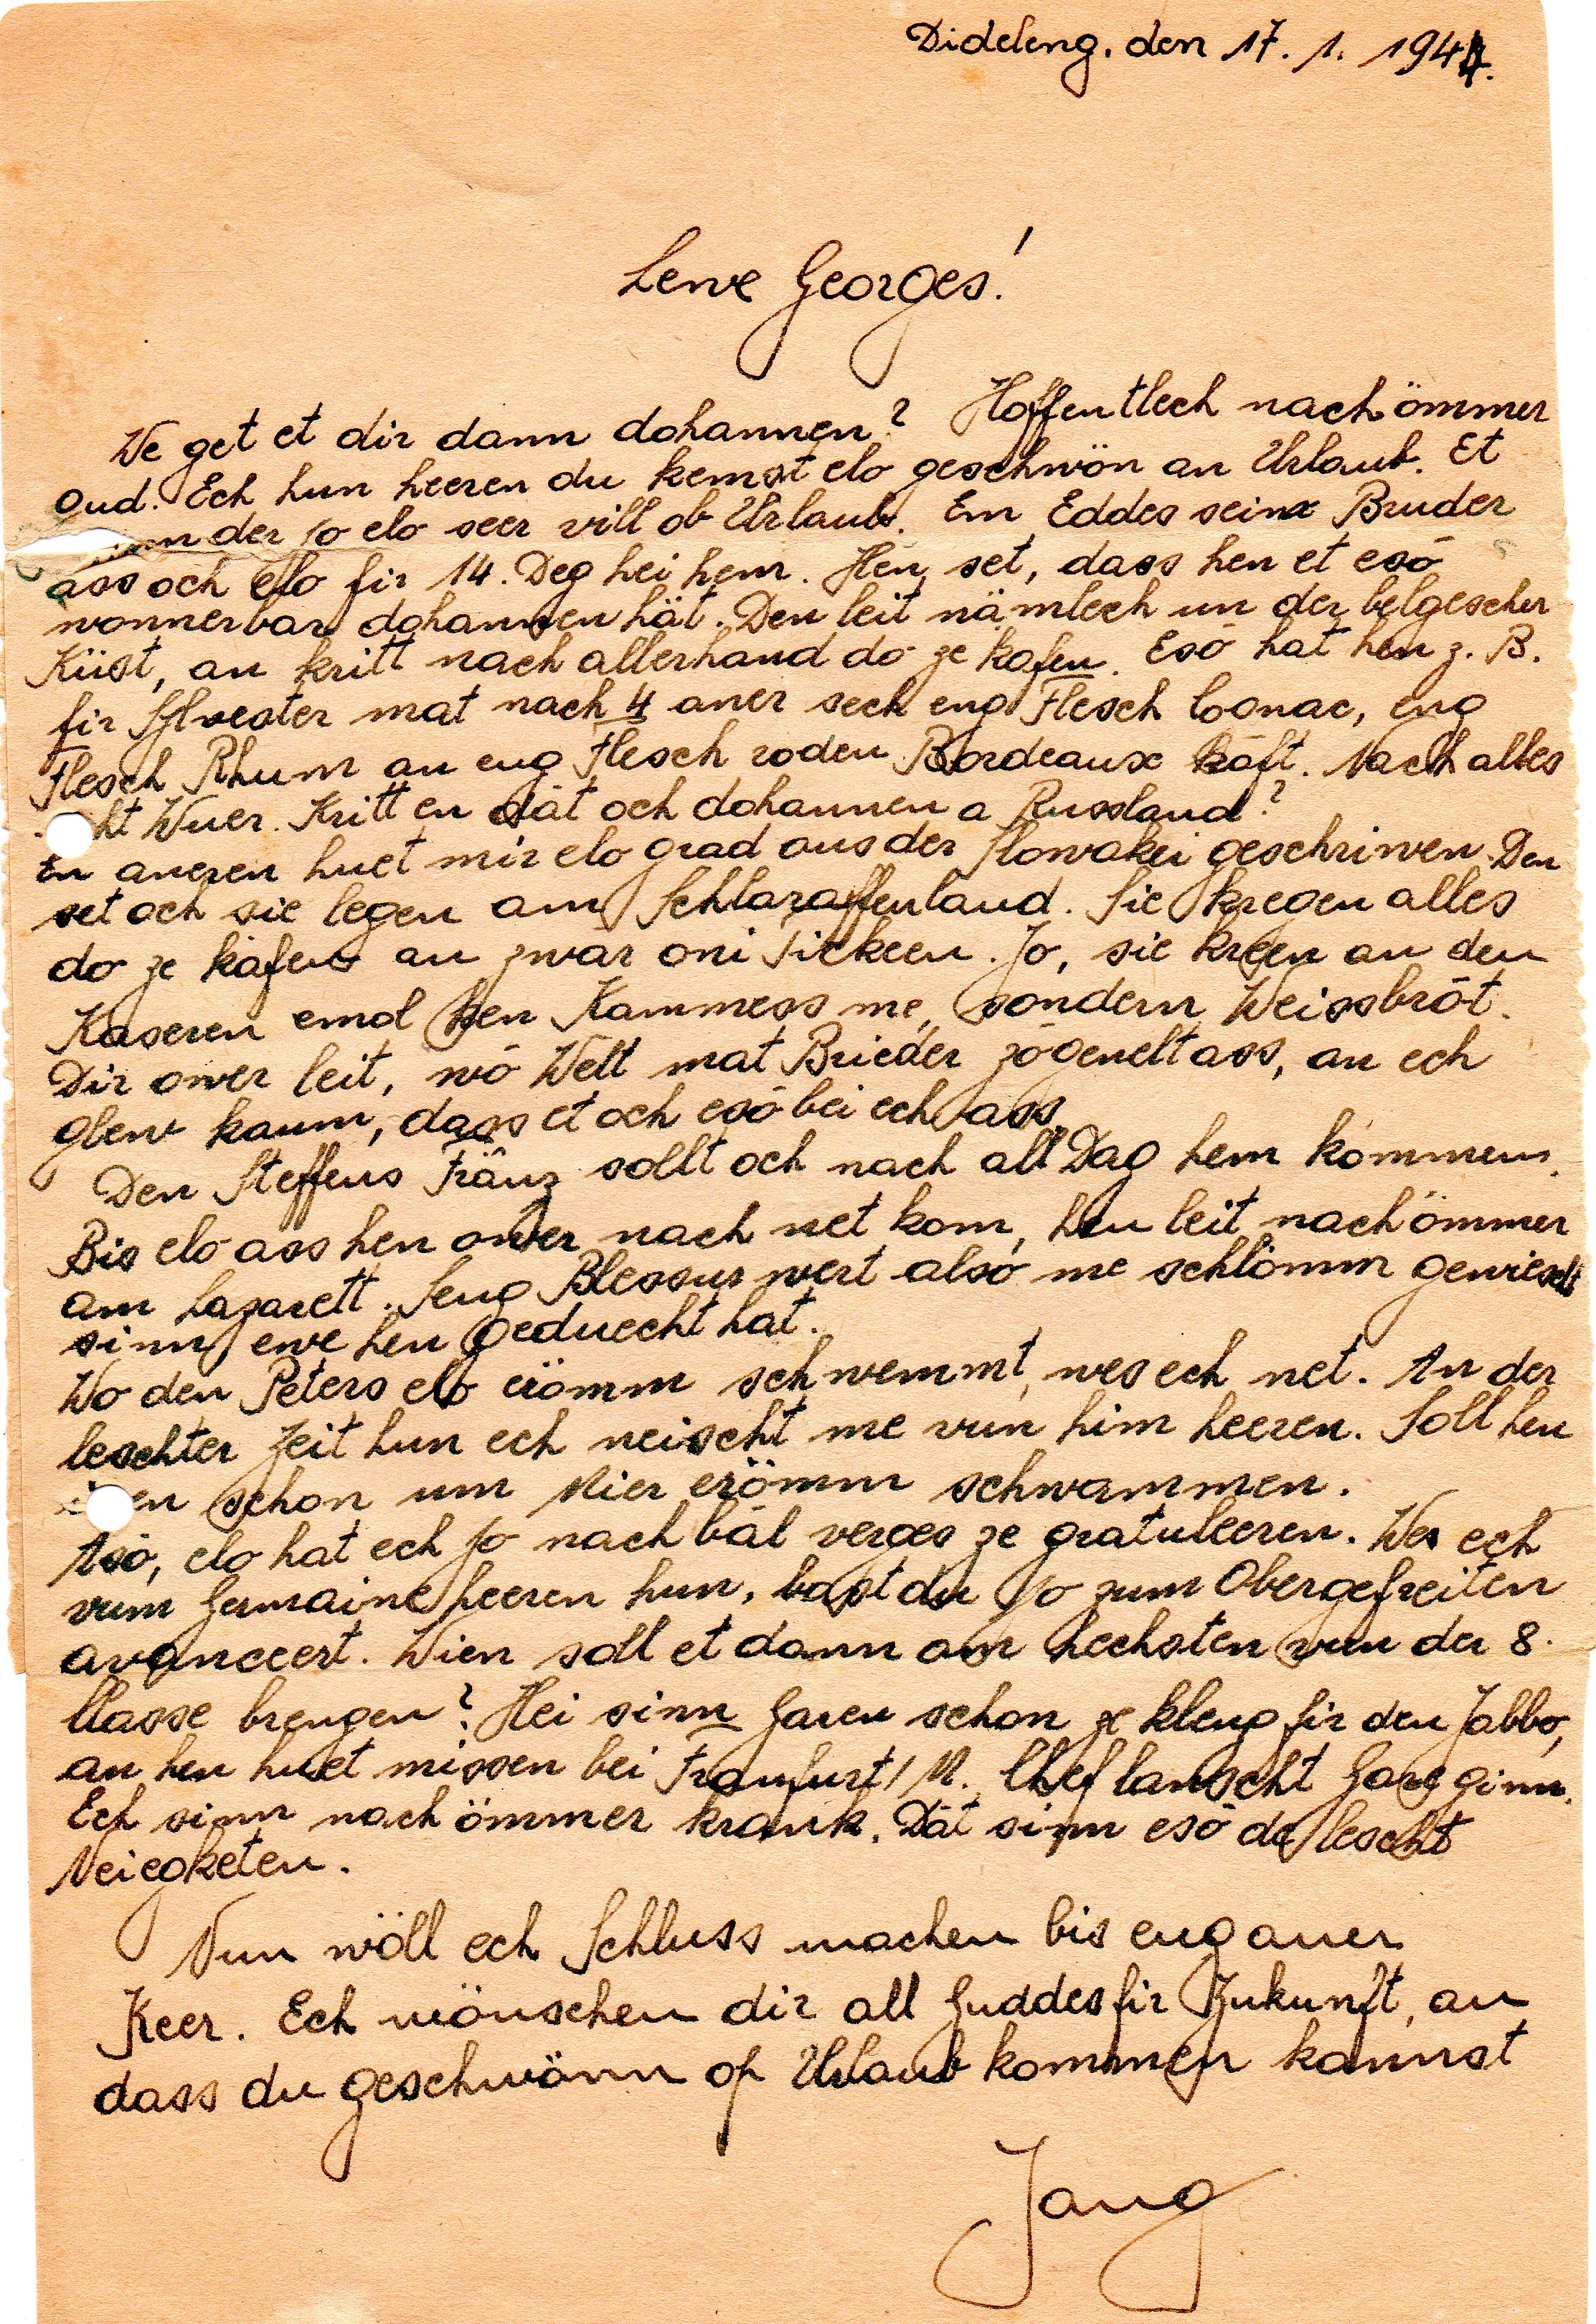 Dideleng, den 17. 1. 1944.
Lewe Georges!
We get et dir dann dohannen? Hoffentlech nach ömmer
gud. Ech hun heeren du kemst elo geschwön an Urlaub. Et
der jo elo seer vill ob Urlaub. Em Eddes seine Bruder
ass och elo fir 14. Deg hei hem. Hen set, dass hen et esō
wonnerbar dohannen hät. Den leit nämlech un der belgescher
Küst, an kritt nach allerhand do ze kafen. Esō hat hen z. B.
fir Sylvester mat nach 4 aner sech eng Flesch Cognac, eng
Flesch Rhum an eng Flesch roden Bordeaux kāft. Nach alles
Wuer. Kritt en dāt och dohannen a Russland?
En aneren huet mir elo grad aus der Slowakei geschriwen. Den
set och sie legen am Schlaraffenland. Sie kregen alles
do ze kafen an zwar oni Tickeen. Jo, sie kreen an den
Kaseren emol ken Kammess me, sondern Weissbrōt.
Dir ower leit, wō Welt mat Brieder zōgenelt ass, an ech
glew kaum, dass et och esō bei ech ass.
Den Steffens Fränz sollt och nach all Dag hem kommen.
Bis elo ass hen ower nach net kom, hen leit nach ömmer
am Lazarett. Seng Blessur wert alsō me schlömm gewiescht
sinn ewe hen geduecht hat.
Wo den Peters elo erömm schwemmt, wes ech net. An der
leschter Zeit hun ech neischt me vun him heeren. Soll hen
schon um Mier erömm schwammen.
Asō, elo hat ech jo nach bāl verges ze gratuleeren. Wes ech
vum Germaine heeren hun, bast du jo zum Obergefreiten
avanceert. Wien soll et dann am hechsten vun der 8.
Classe brengen? Hei sinn Garen schon ze kleng fir den Jabbo,
an hen huet missen bei Frankfurt/M. Chef lanscht Gare ginn.
Ech sinn nach ömmer krank. Dāt sinn esō de lescht
Neiegketen.
Nun wöll ech Schluss machen bis eng aner
Keer. Ech wönschen dir all Guddes fir Zukunft, an
dass du geschwönn op Urlaub kommen kannst
Jang